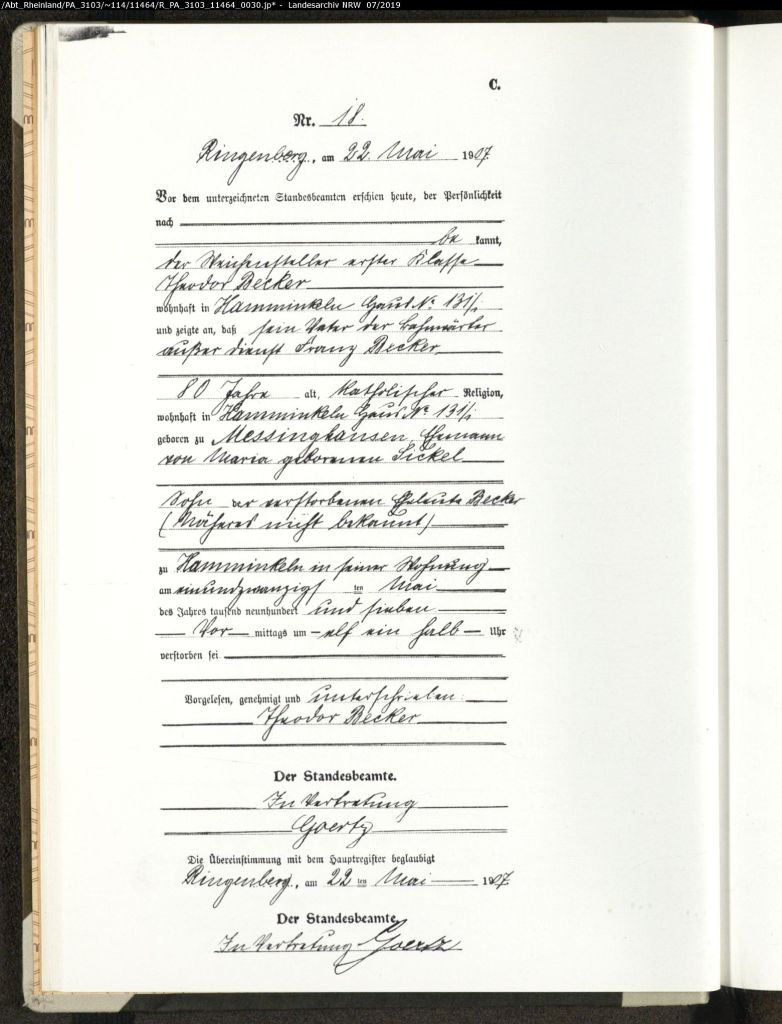 /Abt_Rheinland/PA_3103/~114/11464/R_PA_3103_11464_0030.jp* - Landesarchiv NRW 07/2019
C.
Nr. 18.
Ringenberg, am 22. Mai 1907.
Vor dem unterzeichneten Standesbeamten erschien heute, der Persönlichkeit
nach
be kannt,
der Weichensteller erster Klasse
Theodor Becker
wohnhaft in Hamminkeln Haus No 131/i
und zeigte an, daß sein Vater der Bahnwärter
außer dienst Franz Becker
80 Jahre alt, katholischer Religion,
wohnhaft in Hamminkeln Haus No 131/i
geboren zu Messinghausen, Ehemann
von Maria geborenen Sickel
Sohn der verstorbenen Eheleute Becker
(Näheres nicht bekannt)
zu Hamminkeln in seiner Wohnung
am einundzwanzigs ten Mai
des Jahres tausend neunhundert und sieben
Vor mittags um elf ein halb Uhr
verstorben sei.
Vorgelesen, genehmigt und unterschrieben:
Theodor Becker
Der Standesbeamte.
In Vertretung
Goertz
Die Übereinstimmung mit dem Hauptregister beglaubigt
Ringenberg, am 22 ten Mai 1907.
Der Standesbeamte
In Vertretung Goertz